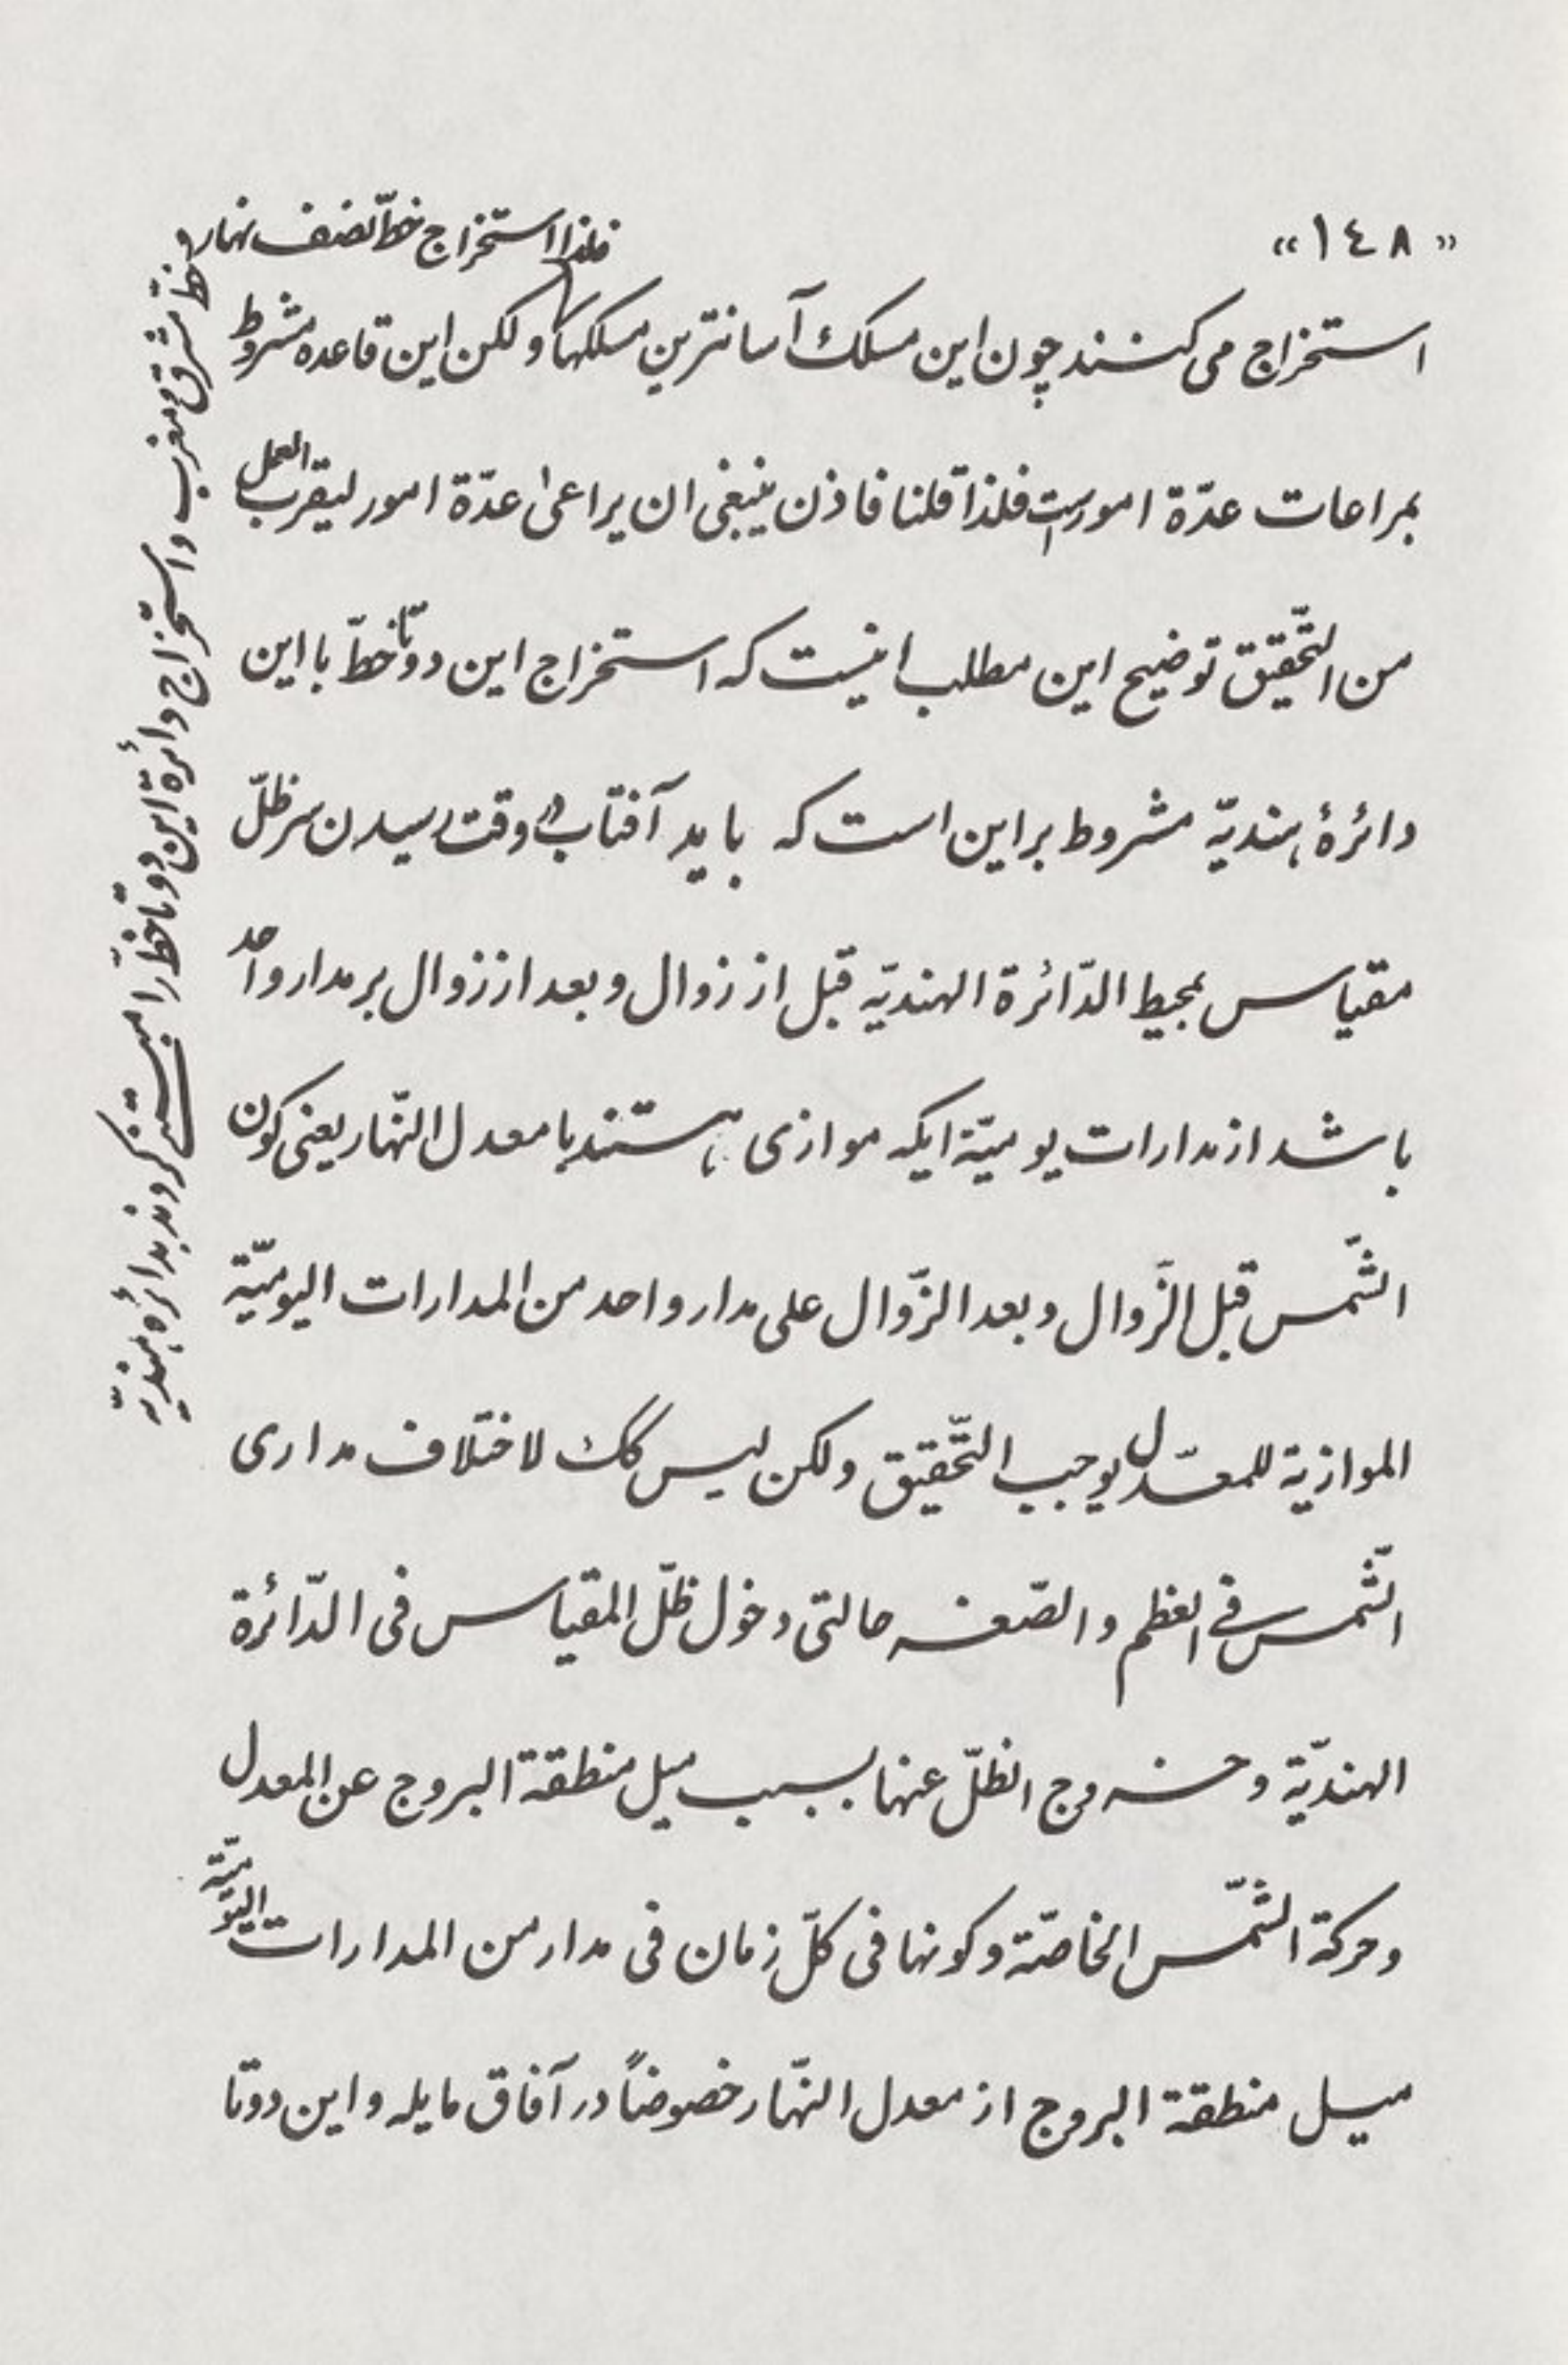 «١٤٨»
فلذا استخراج خطّ نصف نهار و
خطّ مشرق و مغرب و استخراج دائرة این دو تا خطّ را مبتنی کردند بدائرهٔ هندیّه
استخراج می کنند چون این مسلک آسانترین مسلکها و لکن این قاعده مشروط
بمراعات عدّة امور است فلذا قلنا فاذن ینبغی ان یراعیٰ عدّة امور لیقرب العمل
من التّحقیق توضیح این مطلب اینست که استخراج این دو تا خطّ با این
دائرهٔ هندیّه مشروط بر این است که باید آفتاب در وقت رسیدن سر ظلّ
مقیاس بمحیط الدّائرة الهندیّه قبل از زوال و بعد از زوال بر مدار واحد
باشد از مدارات یومیّة ایکه موازی هستند با معدل النّهار یعنی کون
الشّمس قبل الزّوال و بعد الزّوال علی مدار واحد من المدارات الیومیّة
الموازیة للمعدّل یوجب التّحقیق ولکن لیس کک لاختلاف مداری
الشّمس فی العظم و الصّغر حالتی دخول ظلّ المقیاس فی الدّائرة
الهندیّة و خروج الظلّ عنها بسبب میل منطقة البروج عن المعدل
و حرکة الشّمس الخاصّة و کونها فی کلّ زمان فی مدار من المدارات الیومیّة
میل منطقة البروج از معدل النّهار خصوصاً در آفاق مایله و این دو تا